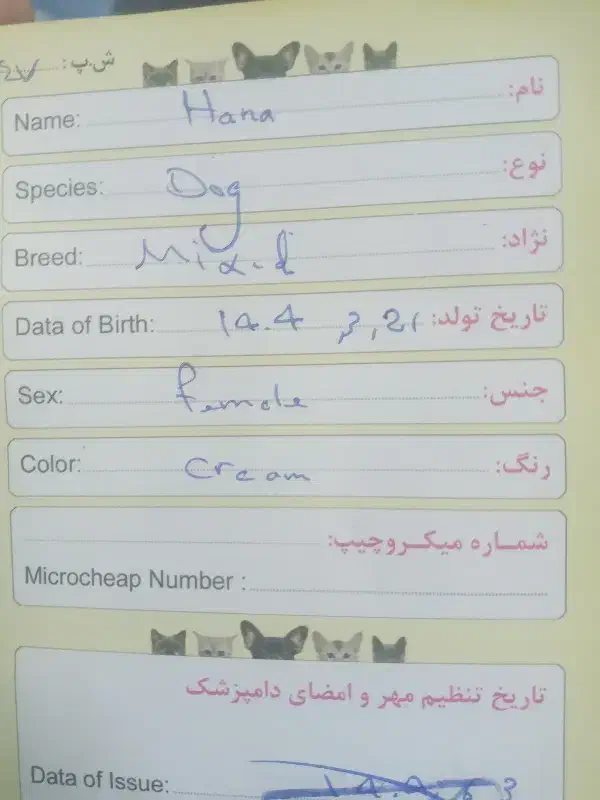 ش.پ:
Name: Hana نام:
Species: Dog نوع:
Breed: Mixed نژاد:
Data of Birth: تاریخ تولد:
Sex: Female جنس:
Color: Cream رنگ:
شماره میکروچیپ:
Microcheap Number :
تاریخ تنظیم مهر و امضای دامپزشک
Data of Issue: